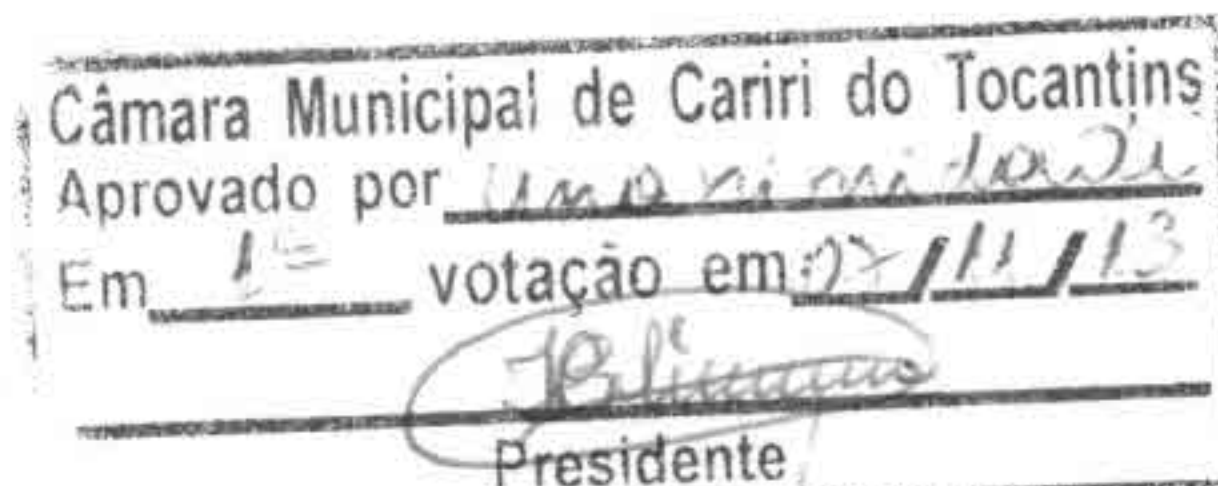 Câmara Municipal de Cariri do Tocantins
Aprovado por unanimidade
Em 1ª votação em 07/11/13
Presidente